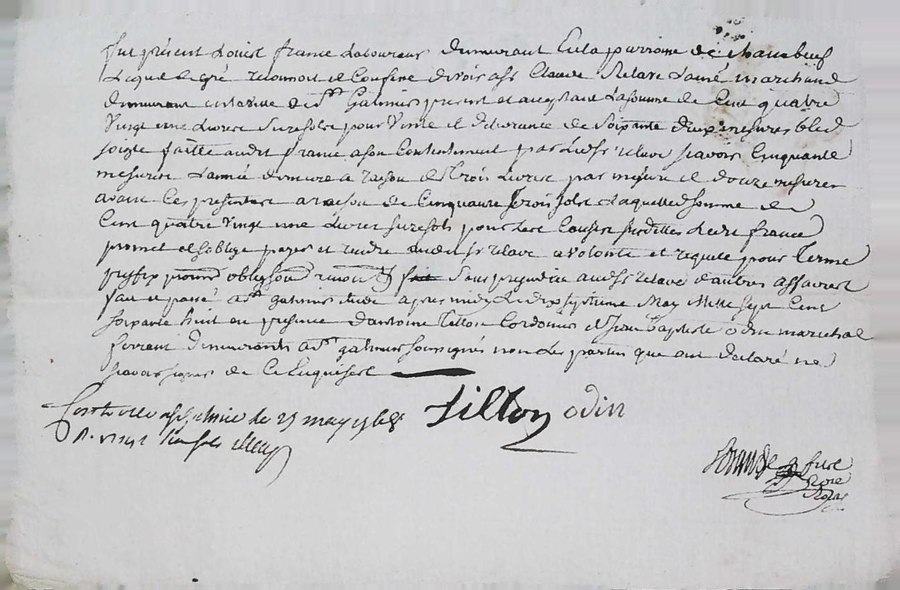 fut présent Louis france Laboureur demeurant en la parroisse de chambeuf
Lequel de gré reconnoit et Confesse devoir a Sr Claude Relave Lainé marchand
demeurant en la ville de St Galmier present et acceptant La somme de Cent quatre
Vingt une Livres Six sols pour Vente et delivrance de soixante deux mesures bled
soigle faitte audit france a son Contentement par Led Sr relave scavoir Cinquante
mesures L'année derniere a raison de Trois Livres par mesure et douze mesures
avant Ces presentes a raison de Cinquante trois sols Laquelle somme de
Cent quatre Vingt une Livres Six sols pour Les Causes susdittes Ledit france
promet et soblige payer et rendre audit Sr relave a volonté et requette pour Terme
prefix promet obligeant renon fait Sans prejudice audit Sr relave d'autres affaires
fait et passé a St galmier Etude apres midy Le dix septieme May Mille Sept Cent
soixante huit en presence d'antoine Tillon Cordonnier et Jean Baptiste odin marechal
ferrant demeurants a St galmier soussignés non Les parties qui ont declaré ne
scavoir signer de Ce Enquis
Tillon odin
Controllé a St galmier le 25 may 1768
R. treize sols